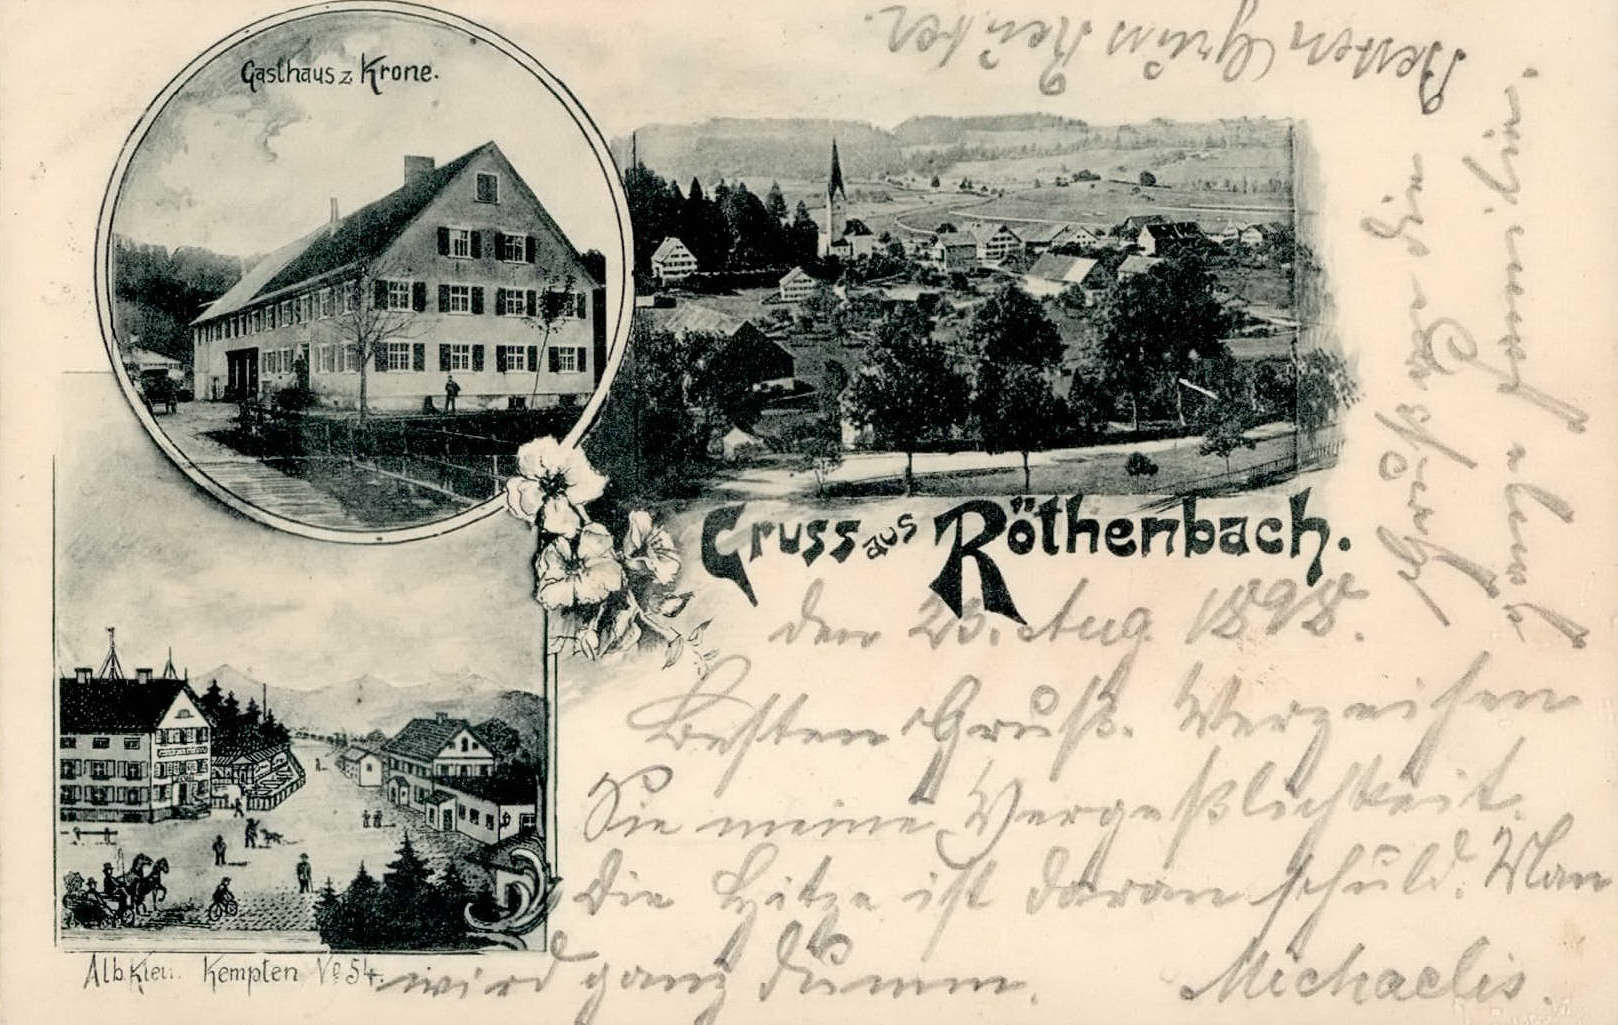 Gasthaus z Krone.
Gruss aus Röthenbach.
den 23. Aug. 1898.
Besten Gruß. Verzeihen
Sie meine Vergeßlichkeit.
Die Hitze ist daran schuld. Man
wird ganz dumm. Michaelis.
Alb. Klein. Kempten No 54.
Besten Gruss